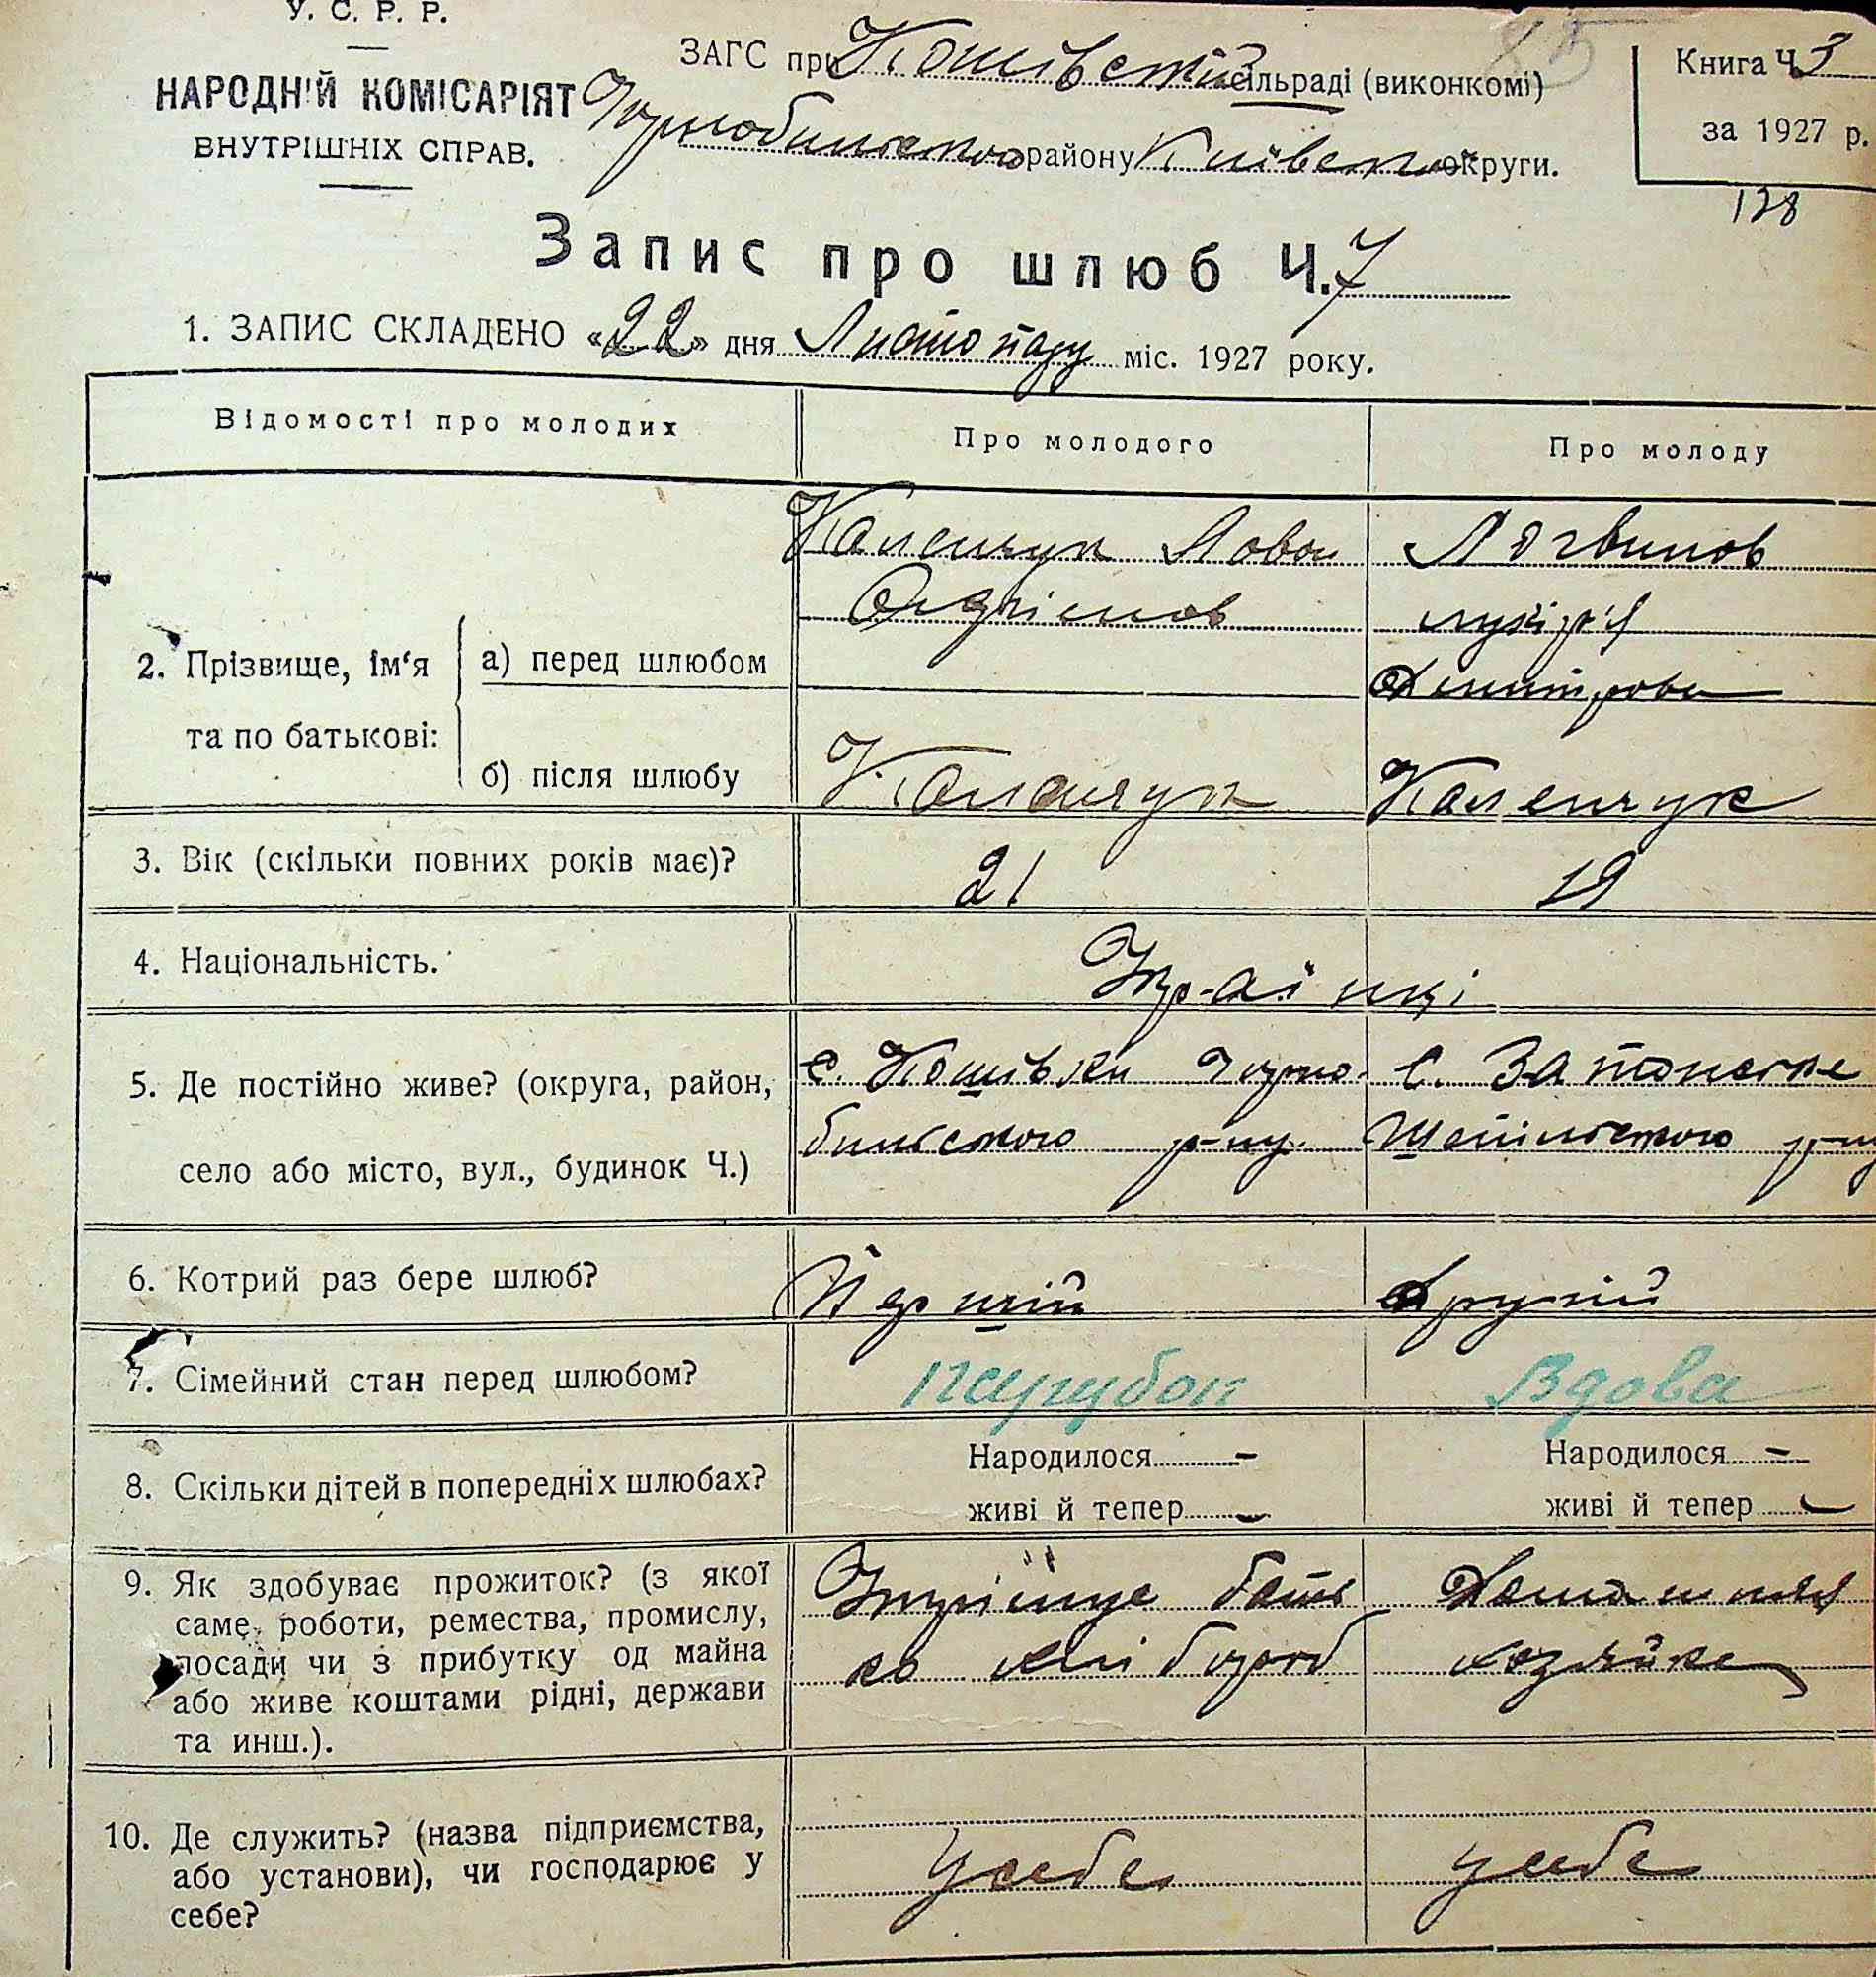 У. С. Р. Р.
НАРОДНІЙ КОМІСАРІЯТ
ВНУТРІШНІХ СПРАВ.
ЗАГС при Кошівській сільраді (виконкомі)
Чорнобильського району Київської округи.
Книга Ч. 3
за 1927 р.
128
Запис про шлюб Ч. 7
1. ЗАПИС СКЛАДЕНО «22» дня Листопаду міс. 1927 року.
Відомості про молодих
Про молодого
Про молоду
2. Прізвище, ім‘я та по батькові:
а) перед шлюбом
Каленчук
Логвинов
Дмитрова
б) після шлюбу
Каленчук
Каленчук
3. Вік (скільки повних років має)?
21
19
4. Національність.
Українці
5. Де постійно живе? (округа, район,
село або місто, вул., будинок Ч.)
с. Кошівки Чорно-
бильського р-ну.
С. Затонське
Шепільского р-ну
6. Котрий раз бере шлюб?
Первий
Другий
7. Сімейний стан перед шлюбом?
парубок
Вдова
8. Скільки дітей в попередніх шлюбах?
Народилося –
живі й тепер –
Народилося –
живі й тепер –
9. Як здобуває прожиток? (з якої
саме роботи, ремества, промислу,
посади чи з прибутку од майна
або живе коштами рідні, держави
та инш.).
бать
ко хлібороб
Домашняя
хозяйка
10. Де служить? (назва підприємства,
або установи), чи господарює у
себе?
У себе
у себе